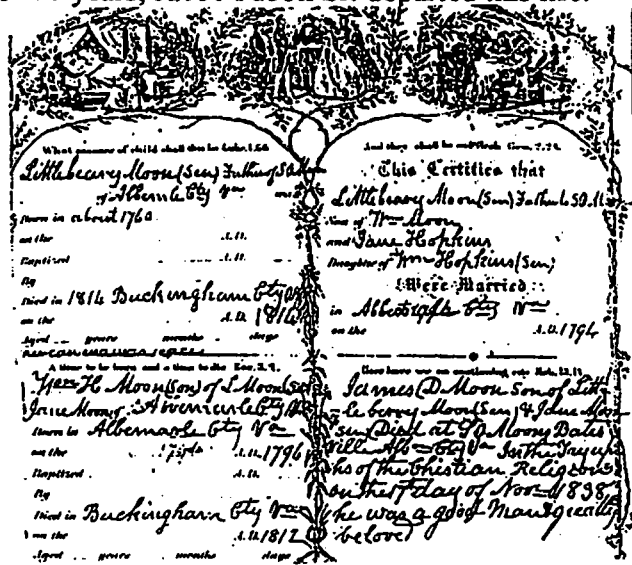 What manner of child shall this be Luke.1.66
Littlebeary Moon (Sen) Father of S O Moon
of Albemle Cty Va and
Born in about 1760
on the A.D.
Baptized A.D.
By
Died in 1814 Buckingham Cty Va
on the A.D. 1814
Aged years months days
A time to be born and a time to die Ecc.3.2.
Wm H Moon (Son) of L Moon (Sen
Jane Moon of Albemarle Cty Va
Born in Albemarle Cty Va
on the A.D. 1796
Baptized A.D.
By
Died in Buckingham Cty Va
on the A.D. 1812
Aged years months days
And they shall be one flesh Gen. 2.24.
This Certifies that
Littlebeary Moon (Sen) Father to S O M
Son of Wm Moon
and Jane Hopkins
Daughter of Wm Hopkins (Sen)
Were Married
in Cty Va
on the A.D. 1794
Here have we no continuing city Heb. 13.14
James D Moon Son of Litt
le berry Moon (Sen) & Jane Moon
(sen) Died at S O Moons Bates
ville Alb Cty Va In the
of the Christian Religion
on the day of Nov 1838
he was a good Man greatly
beloved